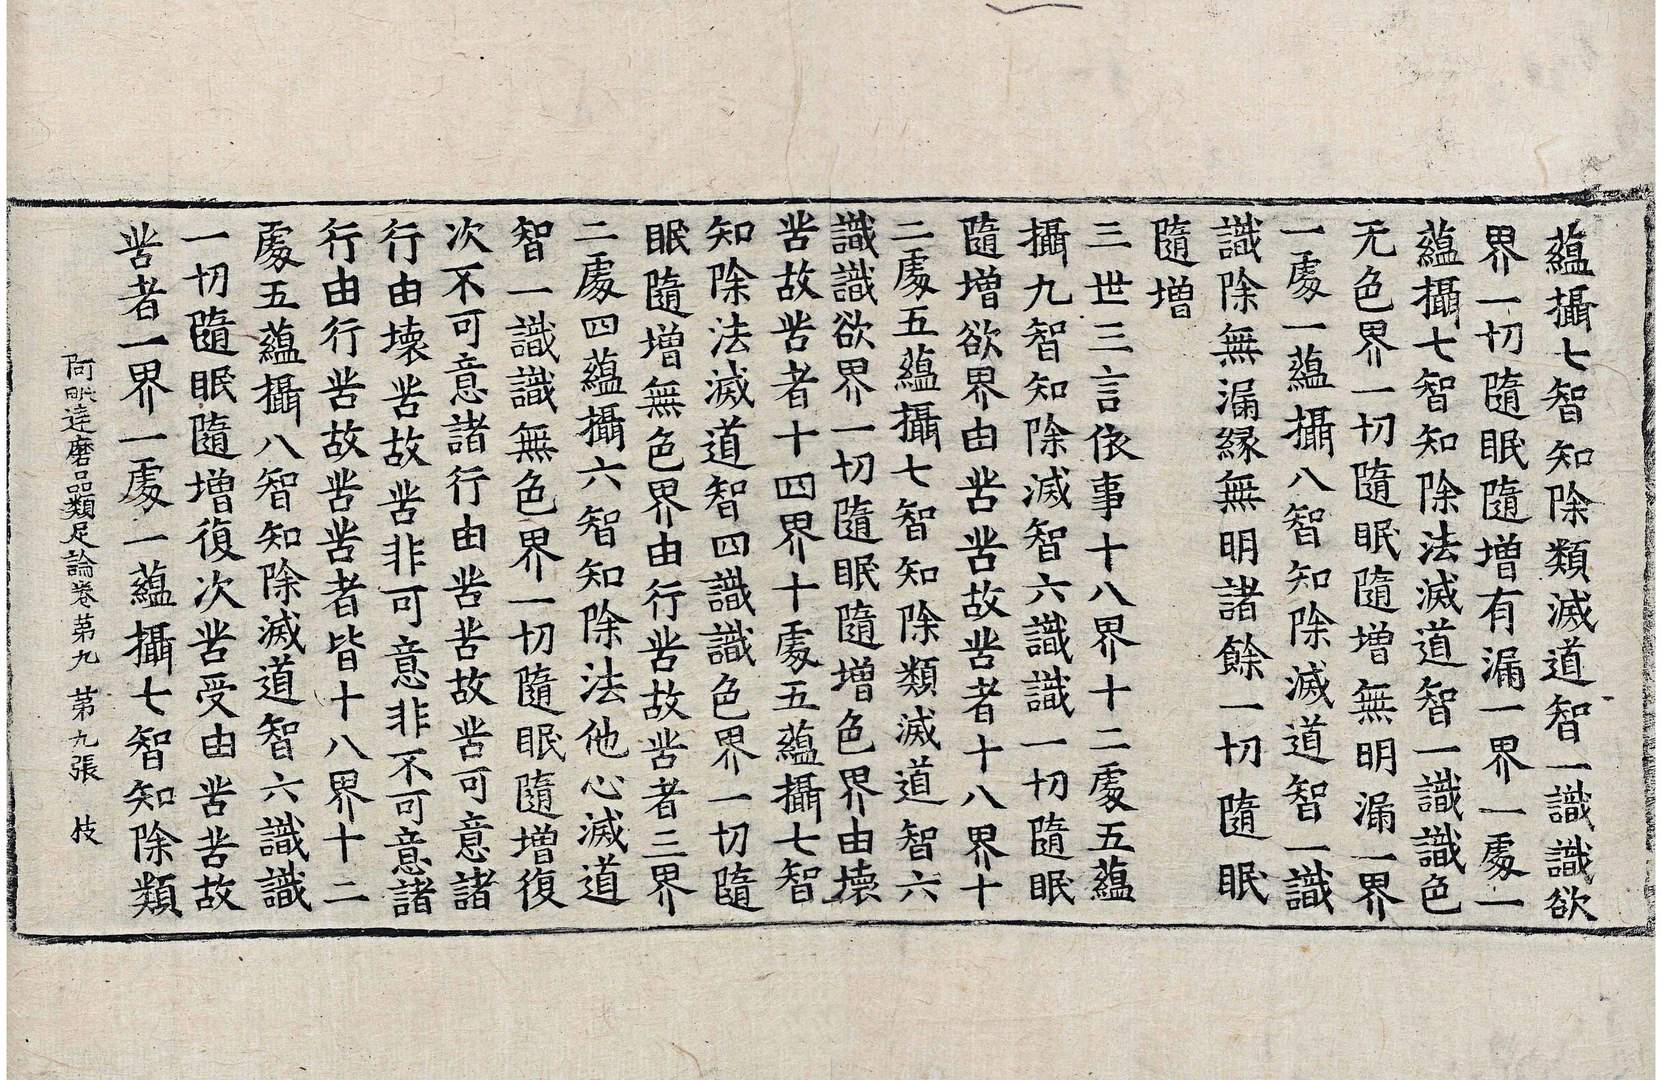 蘊攝七智知除類滅道智一識識欲
界一切隨眠隨增有漏一界一處一
蘊攝七智知除法滅道智一識識色
无色界一切隨眠隨增無明漏一界
一處一蘊攝八智知除滅道智一識
識除無漏緣無明諸餘一切隨眠
隨增
三世三言依事十八界十二處五蘊
攝九智知除滅智六識識一切隨眠
隨增欲界由苦苦故苦者十八界十
二處五蘊攝七智知除類滅道智六
識識欲界一切隨眠隨增色界由壞
苦故苦者十四界十處五蘊攝七智
知除法滅道智四識識色界一切隨
眠隨增無色界由行苦故苦者三界
二處四蘊攝六智知除法他心滅道
智一識識無色界一切隨眠隨增復
次不可意諸行由苦苦故苦可意諸
行由壞苦故苦非可意非不可意諸
行由行苦故苦苦者皆十八界十二
處五蘊攝八智知除滅道智六識識
一切隨眠隨增復次苦受由苦苦故
苦者一界一處一蘊攝七智知除類
阿毗達磨品類足論卷第九 第九張 枝